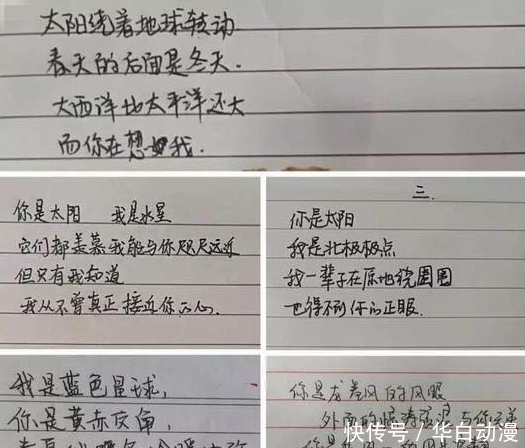 太阳绕着地球转动
春天的后面是冬天.
大西洋比太平洋还大
而你在想我.
你是太阳 我是水星
它们都羡慕我能与你咫尺远近
但只有我知道
我从不曾真正接近你的心.
三.
你是太阳
我是北极极点
我一辈子在原地绕圈圈
也得不到你的正眼.
我是蓝色星球,
你是黄赤交角,
你是龙卷风的风眼
快传号 / 华白动漫